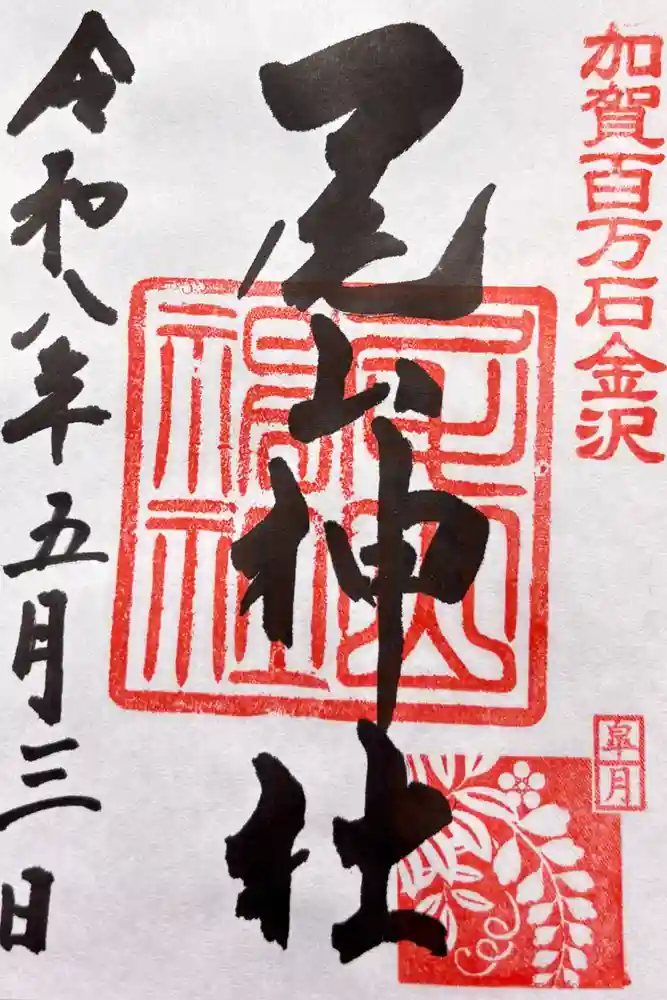 加賀百万石金沢
尾山神社
尾山神社
皐月
令和八年五月三日